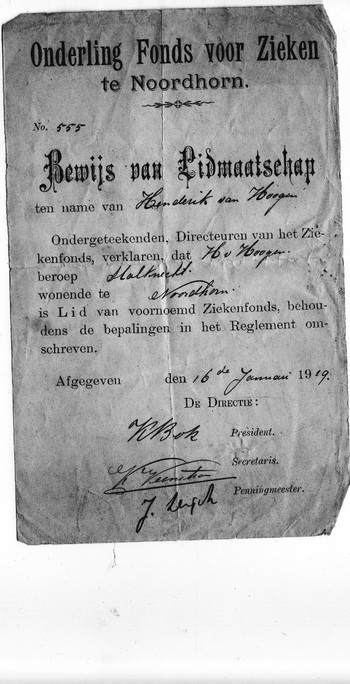 Onderling Fonds voor Zieken
te Noordhorn.
No. 555
Bewijs van Lidmaatschap
ten name van Henderik van Hoogen
Ondergeteekenden, Directeuren van het Zie-
kenfonds, verklaren, dat H v Hoogen
beroep Stalknecht
wonende te Noordhorn.
is Lid van voornoemd Ziekenfonds, behou-
dens de bepalingen in het Reglement om-
schreven.
Afgegeven den 16de Januari 1919.
DE DIRECTIE:
K Bok President.
Secretaris.
Penningmeester.
J.